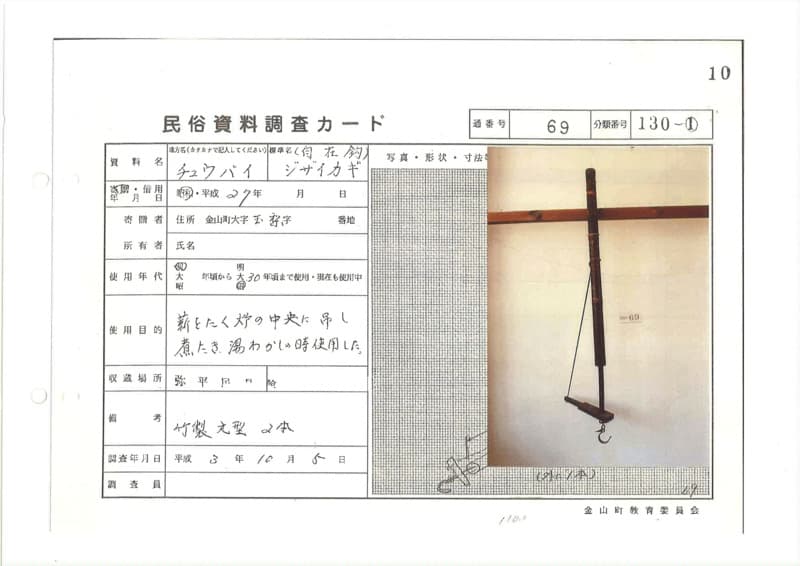 10
民俗資料調査カード
通番号 69 分類番号 130~①
資料名 地方名(カタカナで記入してください) チュウバイ 標準名(自在鈎) ジザイカギ
写真・形状・寸法等
寄贈・借用年月日 昭和・平成 27年 月 日
寄贈者 住所 金山町大字 字 番地
所有者 氏名
使用年代 明 大 昭 年頃から 明 大 昭 30年頃まで使用・現在も使用中
使用目的 薪をたく炉の中央に吊し
煮たき、湯わかしの時使用した。
収蔵場所
備考 竹製 元型 2本
調査年月日 平成 3年 10月 5日
調査員
69
(外に1本)
69
金山町教育委員会